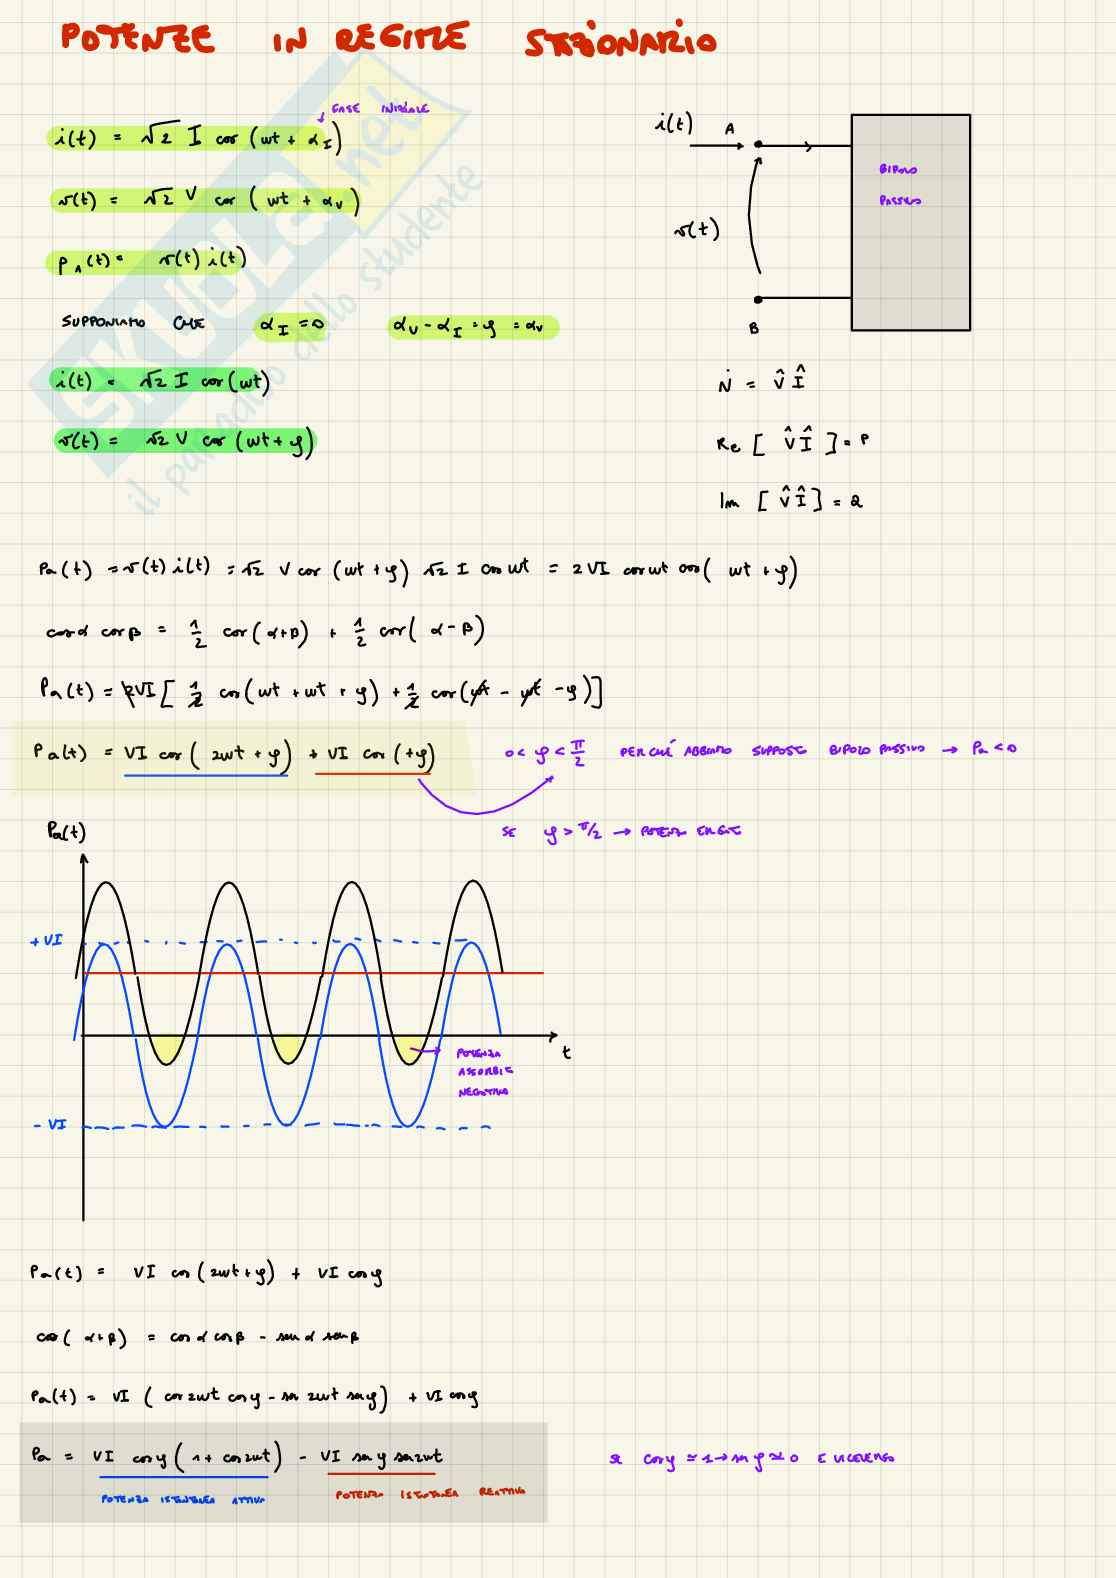 POTENZE IN REGIME STAZIONARIO
FASE INIZIALE
i(t) = √2 I cos (ωt + α_I)
v(t) = √2 V cos (ωt + α_V)
p_A(t) = v(t) i(t)
SUPPONIAMO CHE α_I = 0 α_V - α_I = φ = α_V
i(t) = √2 I cos(ωt)
v(t) = √2 V cos (ωt + φ)
i(t) A
BIPOLO
PASSIVO
v(t)
B
Ṅ = V̂ Î
Re [ V̂ Î ] = P
Im [ V̂ Î ] = Q
Pa(t) = v(t) i(t) = √2 V cos (ωt + φ) √2 I cos ωt = 2VI cos ωt cos( ωt + φ)
cos α cos β = 1/2 cos(α+β) + 1/2 cos( α - β)
Pa(t) = 2VI [ 1/2 cos(ωt + ωt + φ) + 1/2 cos(ωt - ωt - φ)]
Pa(t) = VI cos ( 2ωt + φ) + VI cos (+φ)
0 < φ < π/2 PERCHÉ ABBIAMO SUPPOSTO BIPOLO PASSIVO → Pa < 0
SE φ > π/2 → POTENZA
Pa(t)
+ VI
t
POTENZA
ASSORBITA
NEGATIVA
- VI
Pa(t) = VI cos (2ωt + φ) + VI cos φ
cos( α+β) = cos α cos β - sen α sen β
Pa(t) = VI ( cos 2ωt cos φ - sen 2ωt sen φ) + VI cos φ
Pa = VI cos φ ( 1 + cos 2ωt) - VI sen φ sen 2ωt
POTENZA ISTANTANEA ATTIVA
POTENZA ISTANTANEA REATTIVA
se cos φ ≃ 1 → sen φ ≃ 0 E VICEVERSA
SKUOLA.net
il paradiso dello studente